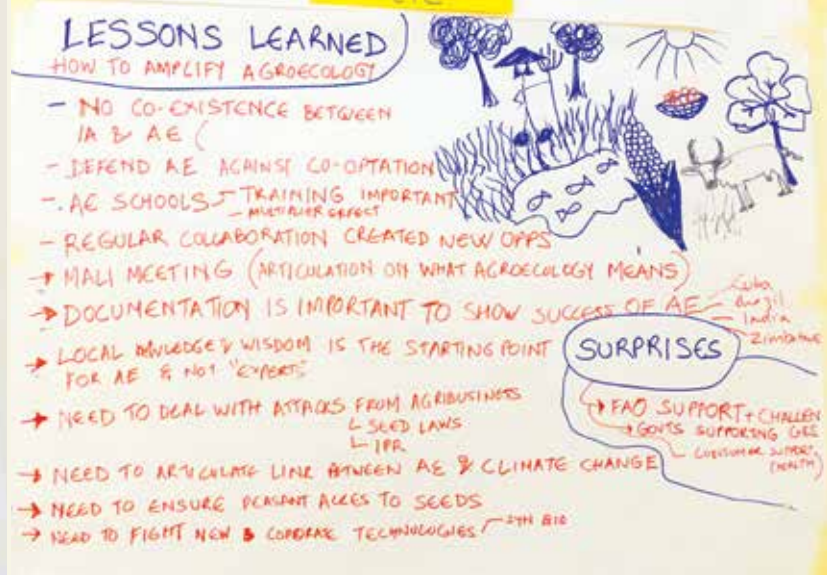 LESSONS LEARNED
HOW TO AMPLIFY AGROECOLOGY
- NO CO-EXISTENCE BETWEEN
IA & AE
- DEFEND AE AGAINST CO-OPTATION
- AE SCHOOLS - TRAINING IMPORTANT
- MULTIPLIER EFFECT
- REGULAR COLLABORATION CREATED NEW OPPS
→ MALI MEETING (ARTICULATION ON WHAT AGROECOLOGY MEANS)
→ DOCUMENTATION IS IMPORTANT TO SHOW SUCCESS OF AE
Cuba
Brazil
India
Zimbabwe
→ LOCAL & WISDOM IS THE STARTING POINT
FOR AE & NOT "EXPERTS"
→ NEED TO DEAL WITH ATTACKS FROM AGRIBUSINESS
SEED LAWS
IPR
→ NEED TO ARTICULATE LINK BETWEEN AE & CLIMATE CHANGE
→ NEED TO ENSURE PEASANT ACCES TO SEEDS
→ NEED TO FIGHT NEW & CORPORATE TECHNOLOGIES - SYN BIO
SURPRISES
→ FAO SUPPORT + CHALLEN
→ GOVTS SUPPORTING
CONSUMER SUPPORT
(HEALTH)